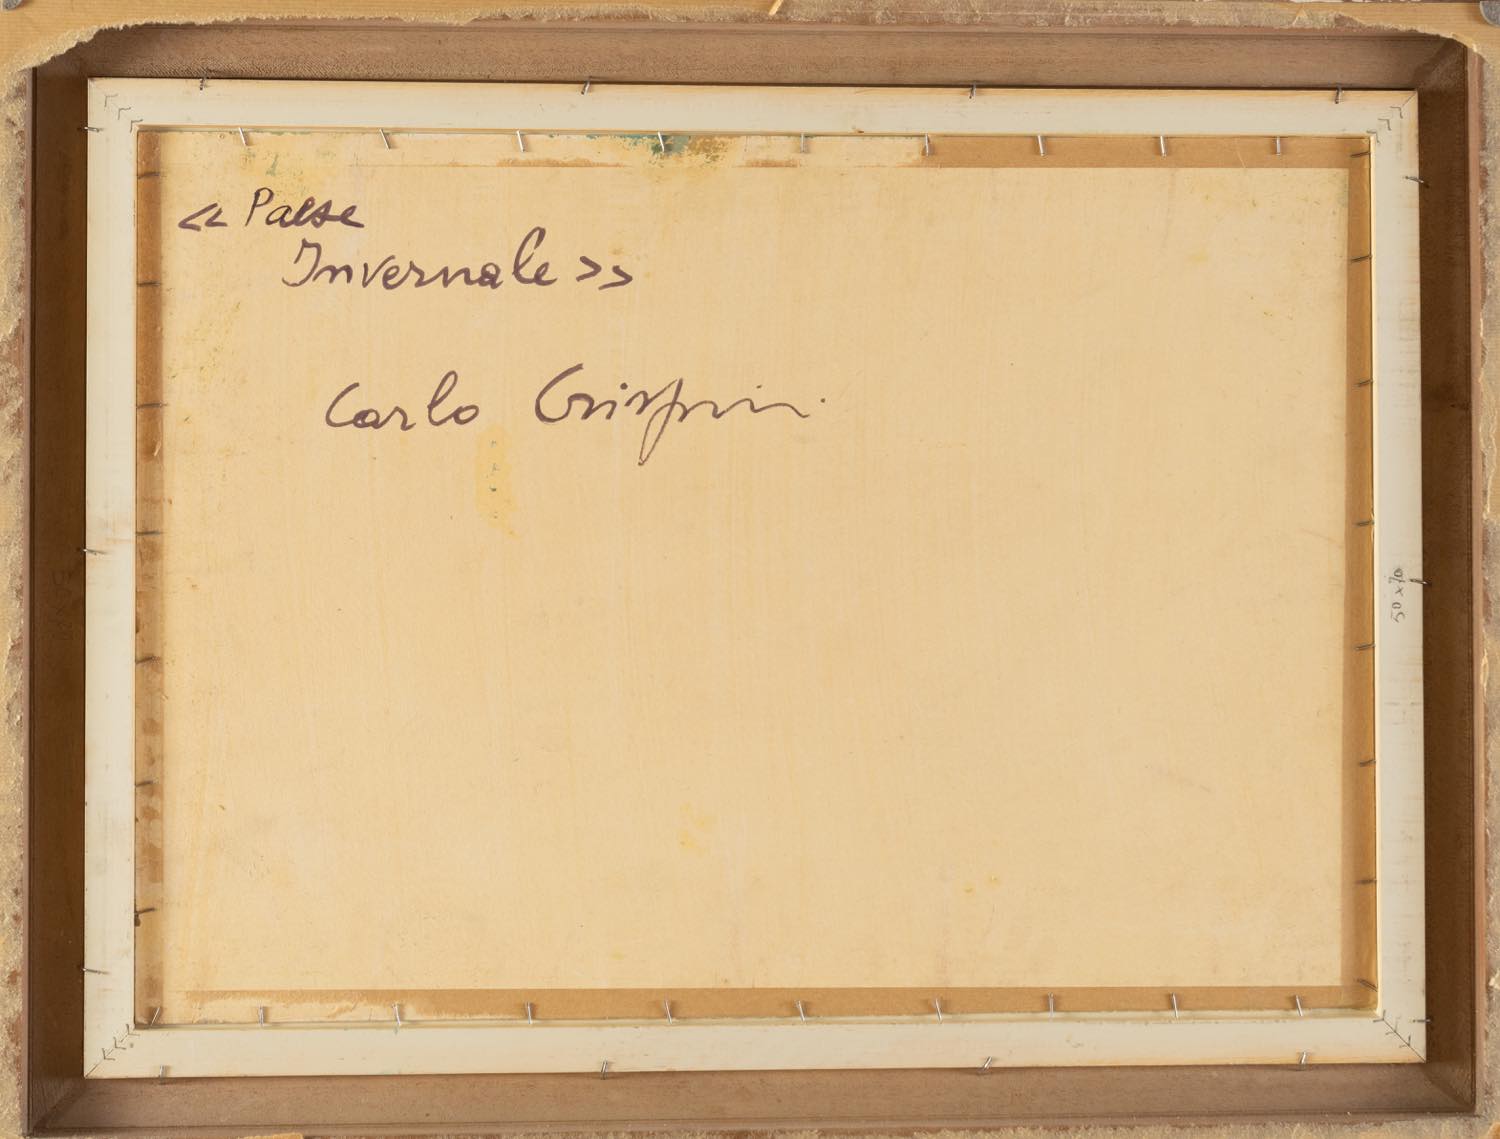 << Paese
Invernale >>
Carlo Crispini
50 x 70